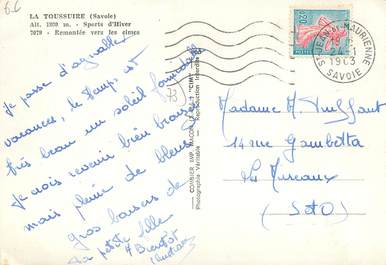 LA TOUSSUIRE (Savoie)
Alt. 1800 m. - Sports d'Hiver
7029 - Remontée vers les cimes
Je passe d'agréables
vacances, le temps est
très beau un soleil formidable
Je vais revenir bien bronzée
mais plein de bleus
gros baisers de
ta petite fille
A Bientôt
73
COMBIER IMP. MACON
Photographie Véritable - Reproduction Interdite
0,20
ST JEAN DE MAURIENNE
1963
SAVOIE
Madame
14 rue Gambetta
Les Mureaux
(S & O)